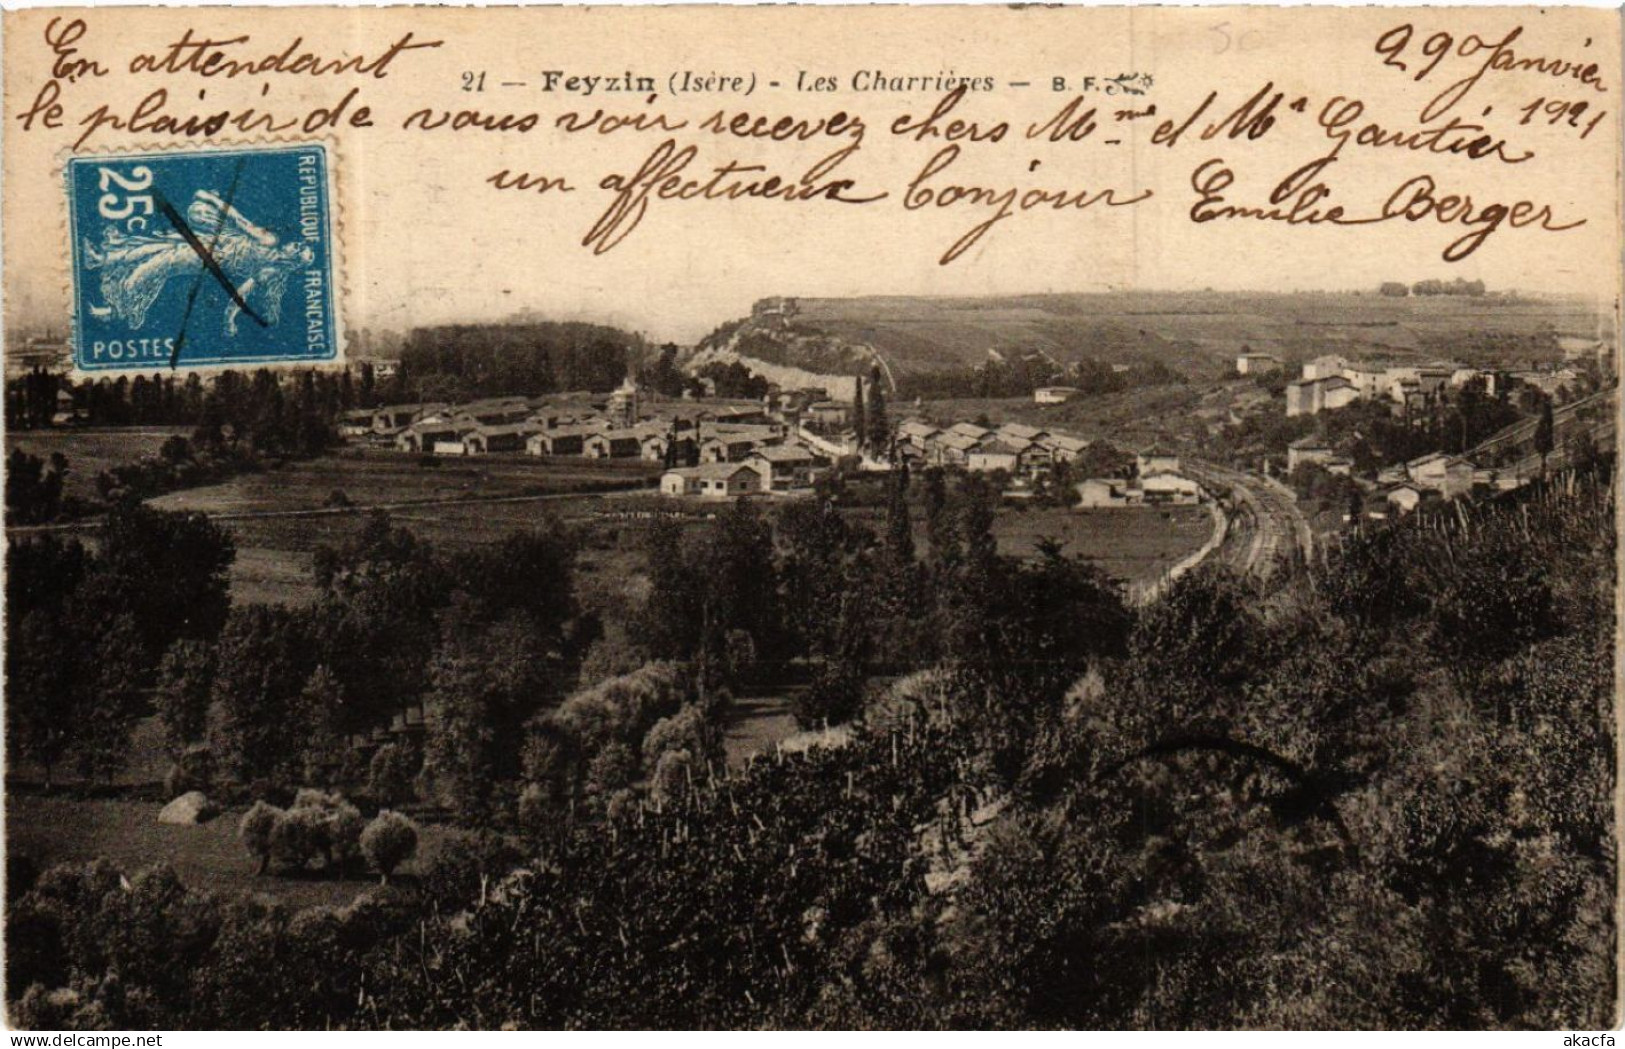 En attendant
29 Janvier
1921
21 — Feyzin (Isère) - Les Charrières — B. F.
le plaisir de vous voir recevez chers Mme et Mr Gautier
un affectueux bonjour Emilie Berger
25c
REPUBLIQUE FRANCAISE
POSTES
akacfa